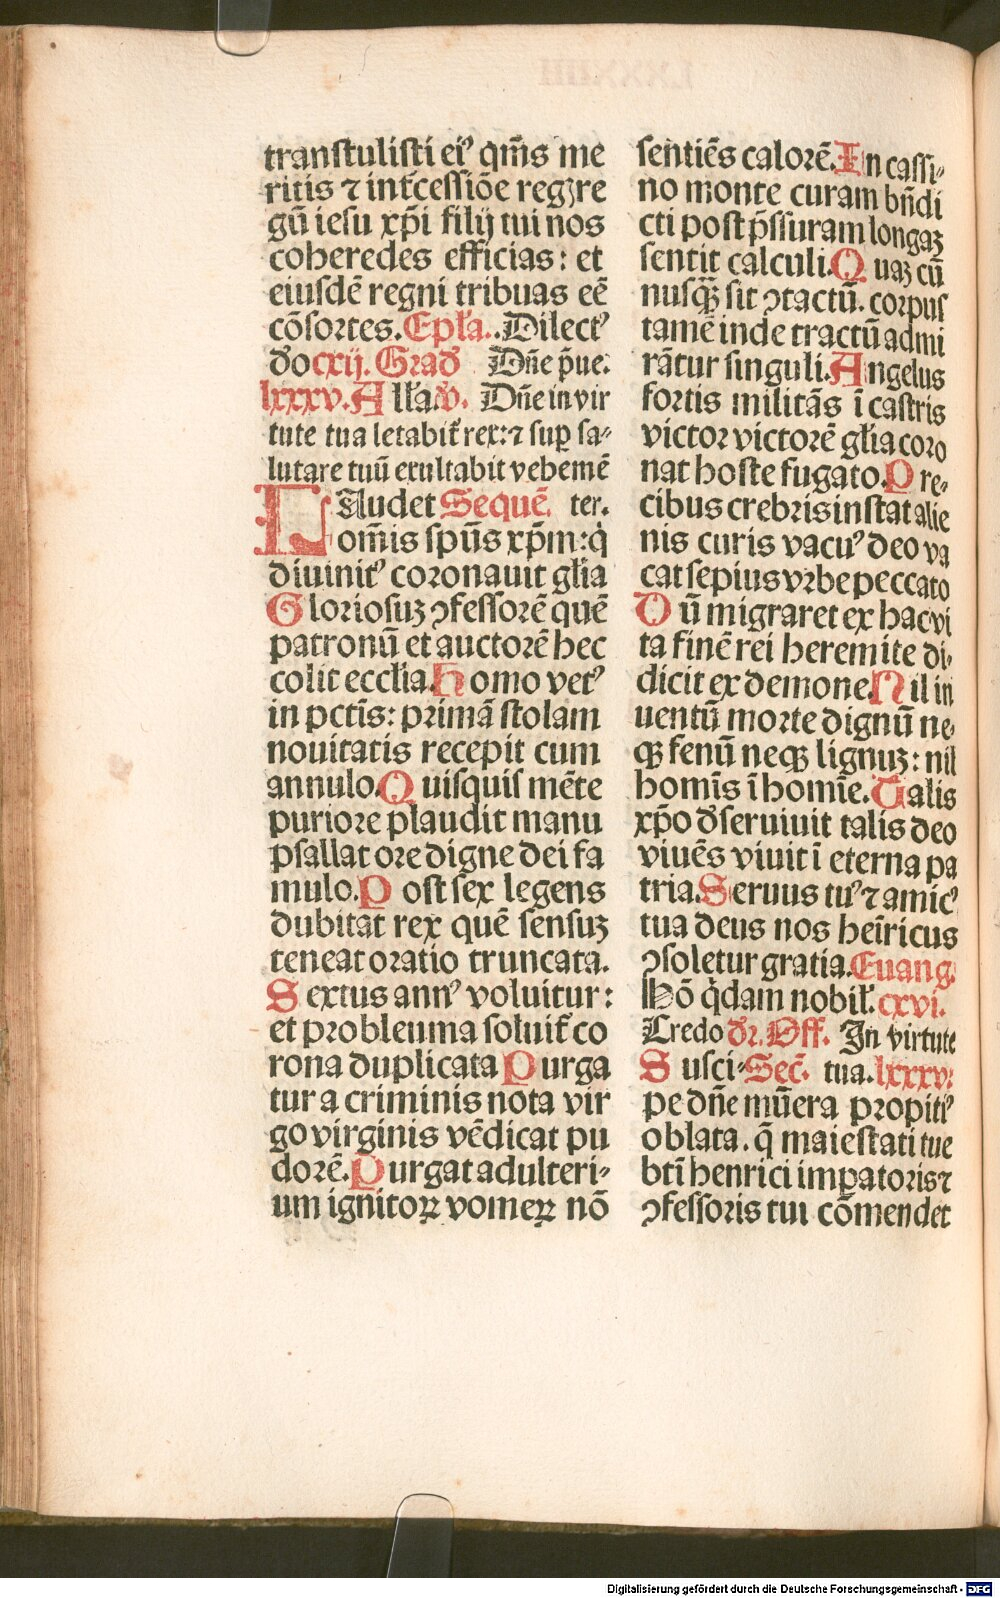 tranſtuliſti eiꝰ qm̄s me
ritis ⁊ int̄ceſſiōe regꝫ re
gū ieſu xp̄i filij tui nos
coheredes efficias: et
eiuſdē regni tribuas eē
cōſortes. Epl̄a. Dilectꝰ
ðo cxij. Grað Dn̄e p̄ue.
lxxxv. All̄a. v̄. Dn̄e in vir
tute tua letabit̄ rex: ⁊ ſuꝑ ſa⸗
lutare tuū exultabit vehemē
LAudet Sequē. ter.
om̄is ſpūs xp̄m: q̇
diuinitꝰ coronauit gl̄ia
Glorioſuꝫ ꝯfeſſorē quē
patronū et auctorē hec
colit eccl̄ia. Homo vetꝰ
in pctīs: primā ſtolam
nouitatis recepit cum
annulo. Quiſquiſ mēte
puriore plaudit manu
pſallat ore digne dei fa
mulo. Poſt ſex legens
dubitat rex quē ſenſuꝫ
teneat oratio truncata.
Sextus annꝰ voluitur:
et probleuma ſoluit̄ co
rona duplicata Purga
tur a criminis nota vir
go virginis vēdicat pu
dorē. Purgat adulteri⸗
um ignitoꝝ vomeꝝ nō
ſentiēs calorē. In caſſi⸗
no monte curam bn̄di
cti poſt p̄ſſuram longaꝫ
ſentit calculi. Quaꝫ cū
nuſꝙ̄ ſit ꝯtactū. corpuſ
tamē inde tractū admi
rātur ſinguli. Angelus
fortis militās ī caſtris
victor victorē gl̄ia coro
nat hoſte fugato. Pre⸗
cibus crebris inſtat alie
nis curis vacuꝰ deo va
cat ſepius vrbe peccato
Dū migraret ex hac vi
ta finē rei heremite di⸗
dicit ex demone. Nil in
uentū morte dignū ne⸗
qꝫ fenū neqꝫ lignuꝫ: nil
homīs ī homīe. Talis
xp̄o ðſeruiuit talis deo
viuēs viuit ī eterna pa
tria. Seruus tuꝰ ⁊ amicꝰ
tua deus nos heīricus
ꝯſoletur gratia. Euang.
Hō q̇dam nobil̄. cxvi.
Credo ðr. Off. In virtute
Suſci⸗ Sec̄. tua. lxxxv.
pe dn̄e mūera propitiꝰ
oblata. q̄ maieſtati tue
btī henrici imꝑatoris ⁊
ꝯfeſſoris tui cōmendet
Digitalisierung gefördert durch die Deutsche Forschungsgemeinschaft - DFG